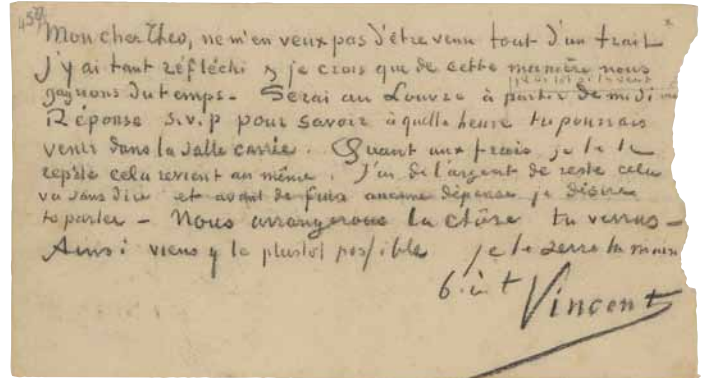 Mon cher Theo, ne m'en veux pas d'être venu tout d'un trait
J'y ai tant réfléchi & je crois que de cette manière nous
gagnons du temps – Serai au Louvre à partir de midi
ou plus tôt si tu veux
Réponse s.v.p pour savoir à quelle heure tu pourrais
venir dans la salle carrée. Quant aux frais, je te le
repète cela revient au même. J'ai de l'argent de reste cela
va sans dire et avant de faire aucune dépense je désire
te parler – Nous arrangerons la chôse tu verras –
Ainsi viens y le plustot possible je te serre la main
b. à t
Vincent